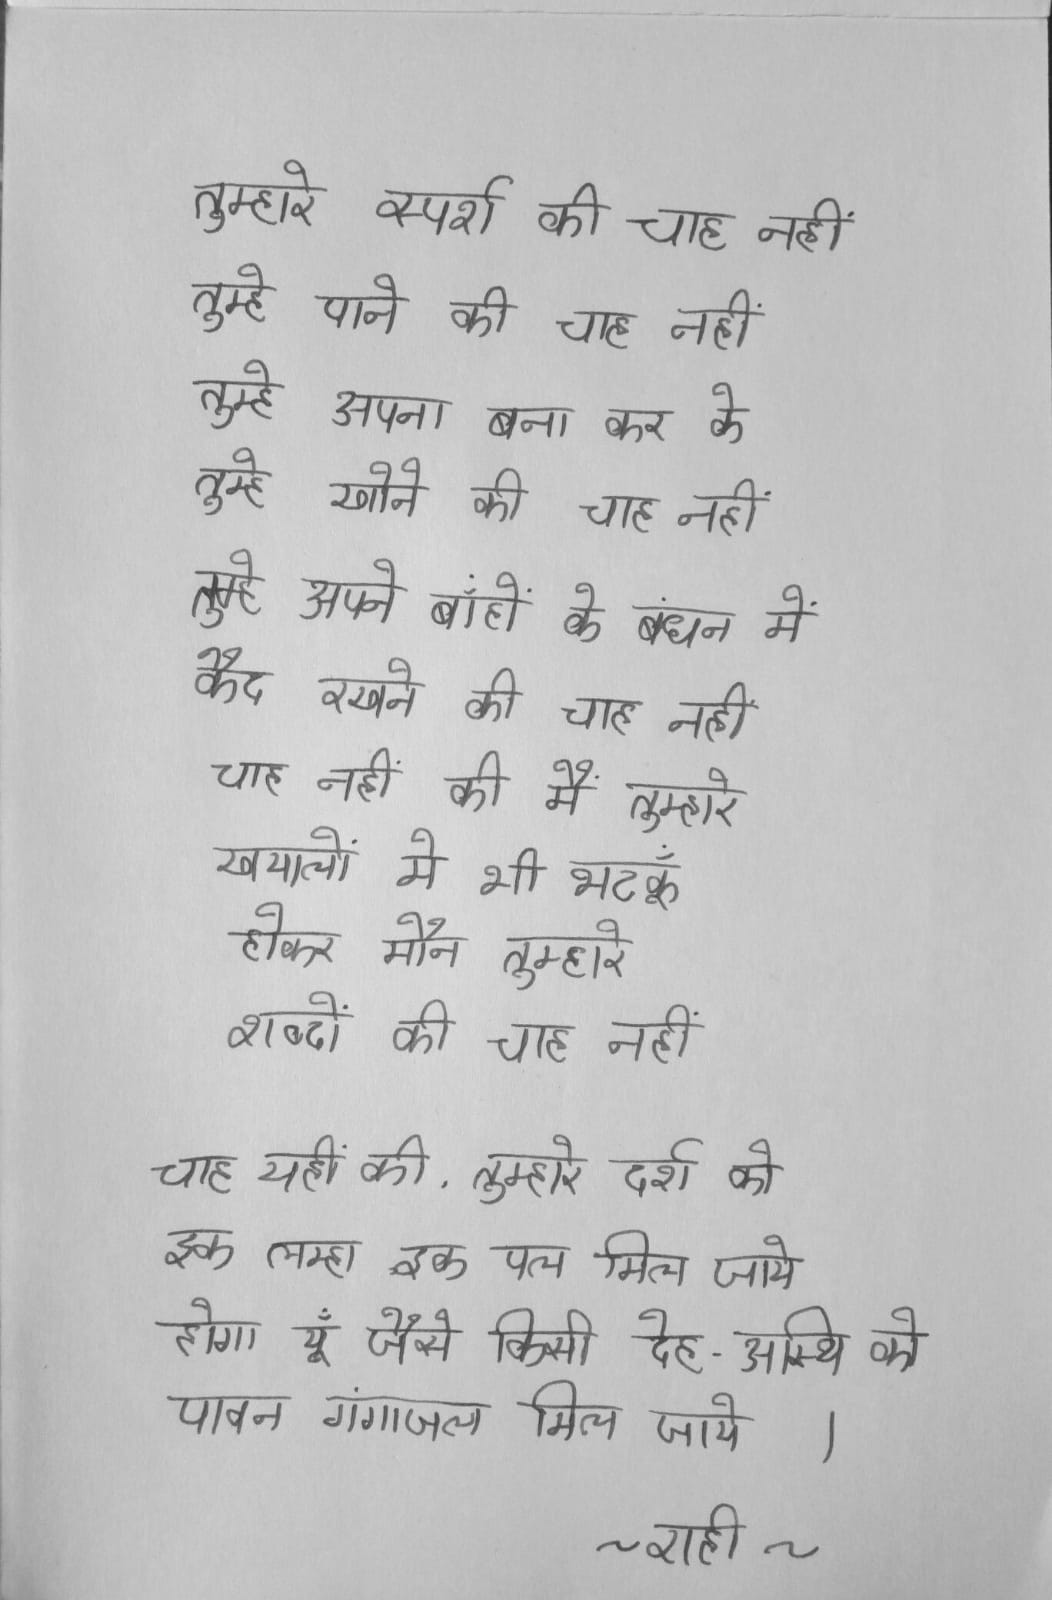 तुम्हारे स्पर्श की चाह नहीं
तुम्हे पाने की चाह नहीं
तुम्हे अपना बना कर के
तुम्हे खोने की चाह नहीं
तुम्हे अपने बाँहों के बंधन में
कैद रखने की चाह नहीं
चाह नहीं की मैं तुम्हारे
खयालों मे भी भटकूँ
होकर मौन तुम्हारे
शब्दों की चाह नहीं
चाह यहीं की, तुम्हारे दर्श को
इक लम्हा इक पल मिल जाये
होगा यूँ जैसे किसी देह-अस्थि को
पावन गंगाजल मिल जाये ।
~राही~